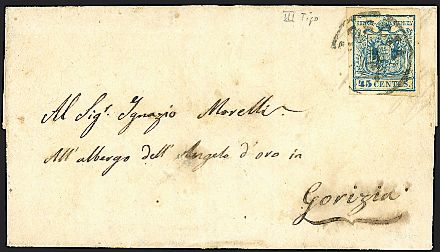 III Tipo
45 CENTES
Al Sigr. Ignazio Morelli
All'albergo dell'Angelo d'oro in
Gorizia